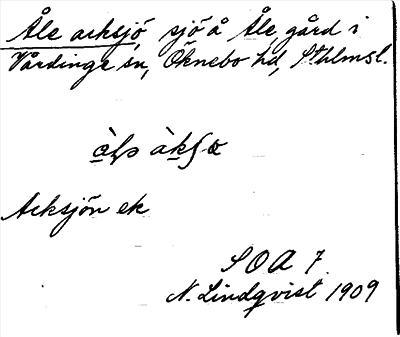 Åle acksjö, sjö å Åle gård i
Vårdinge sn, Öknebo hd, Sthlmsl.
Acksjön ek
SOA 7
N. Lindqvist 1909